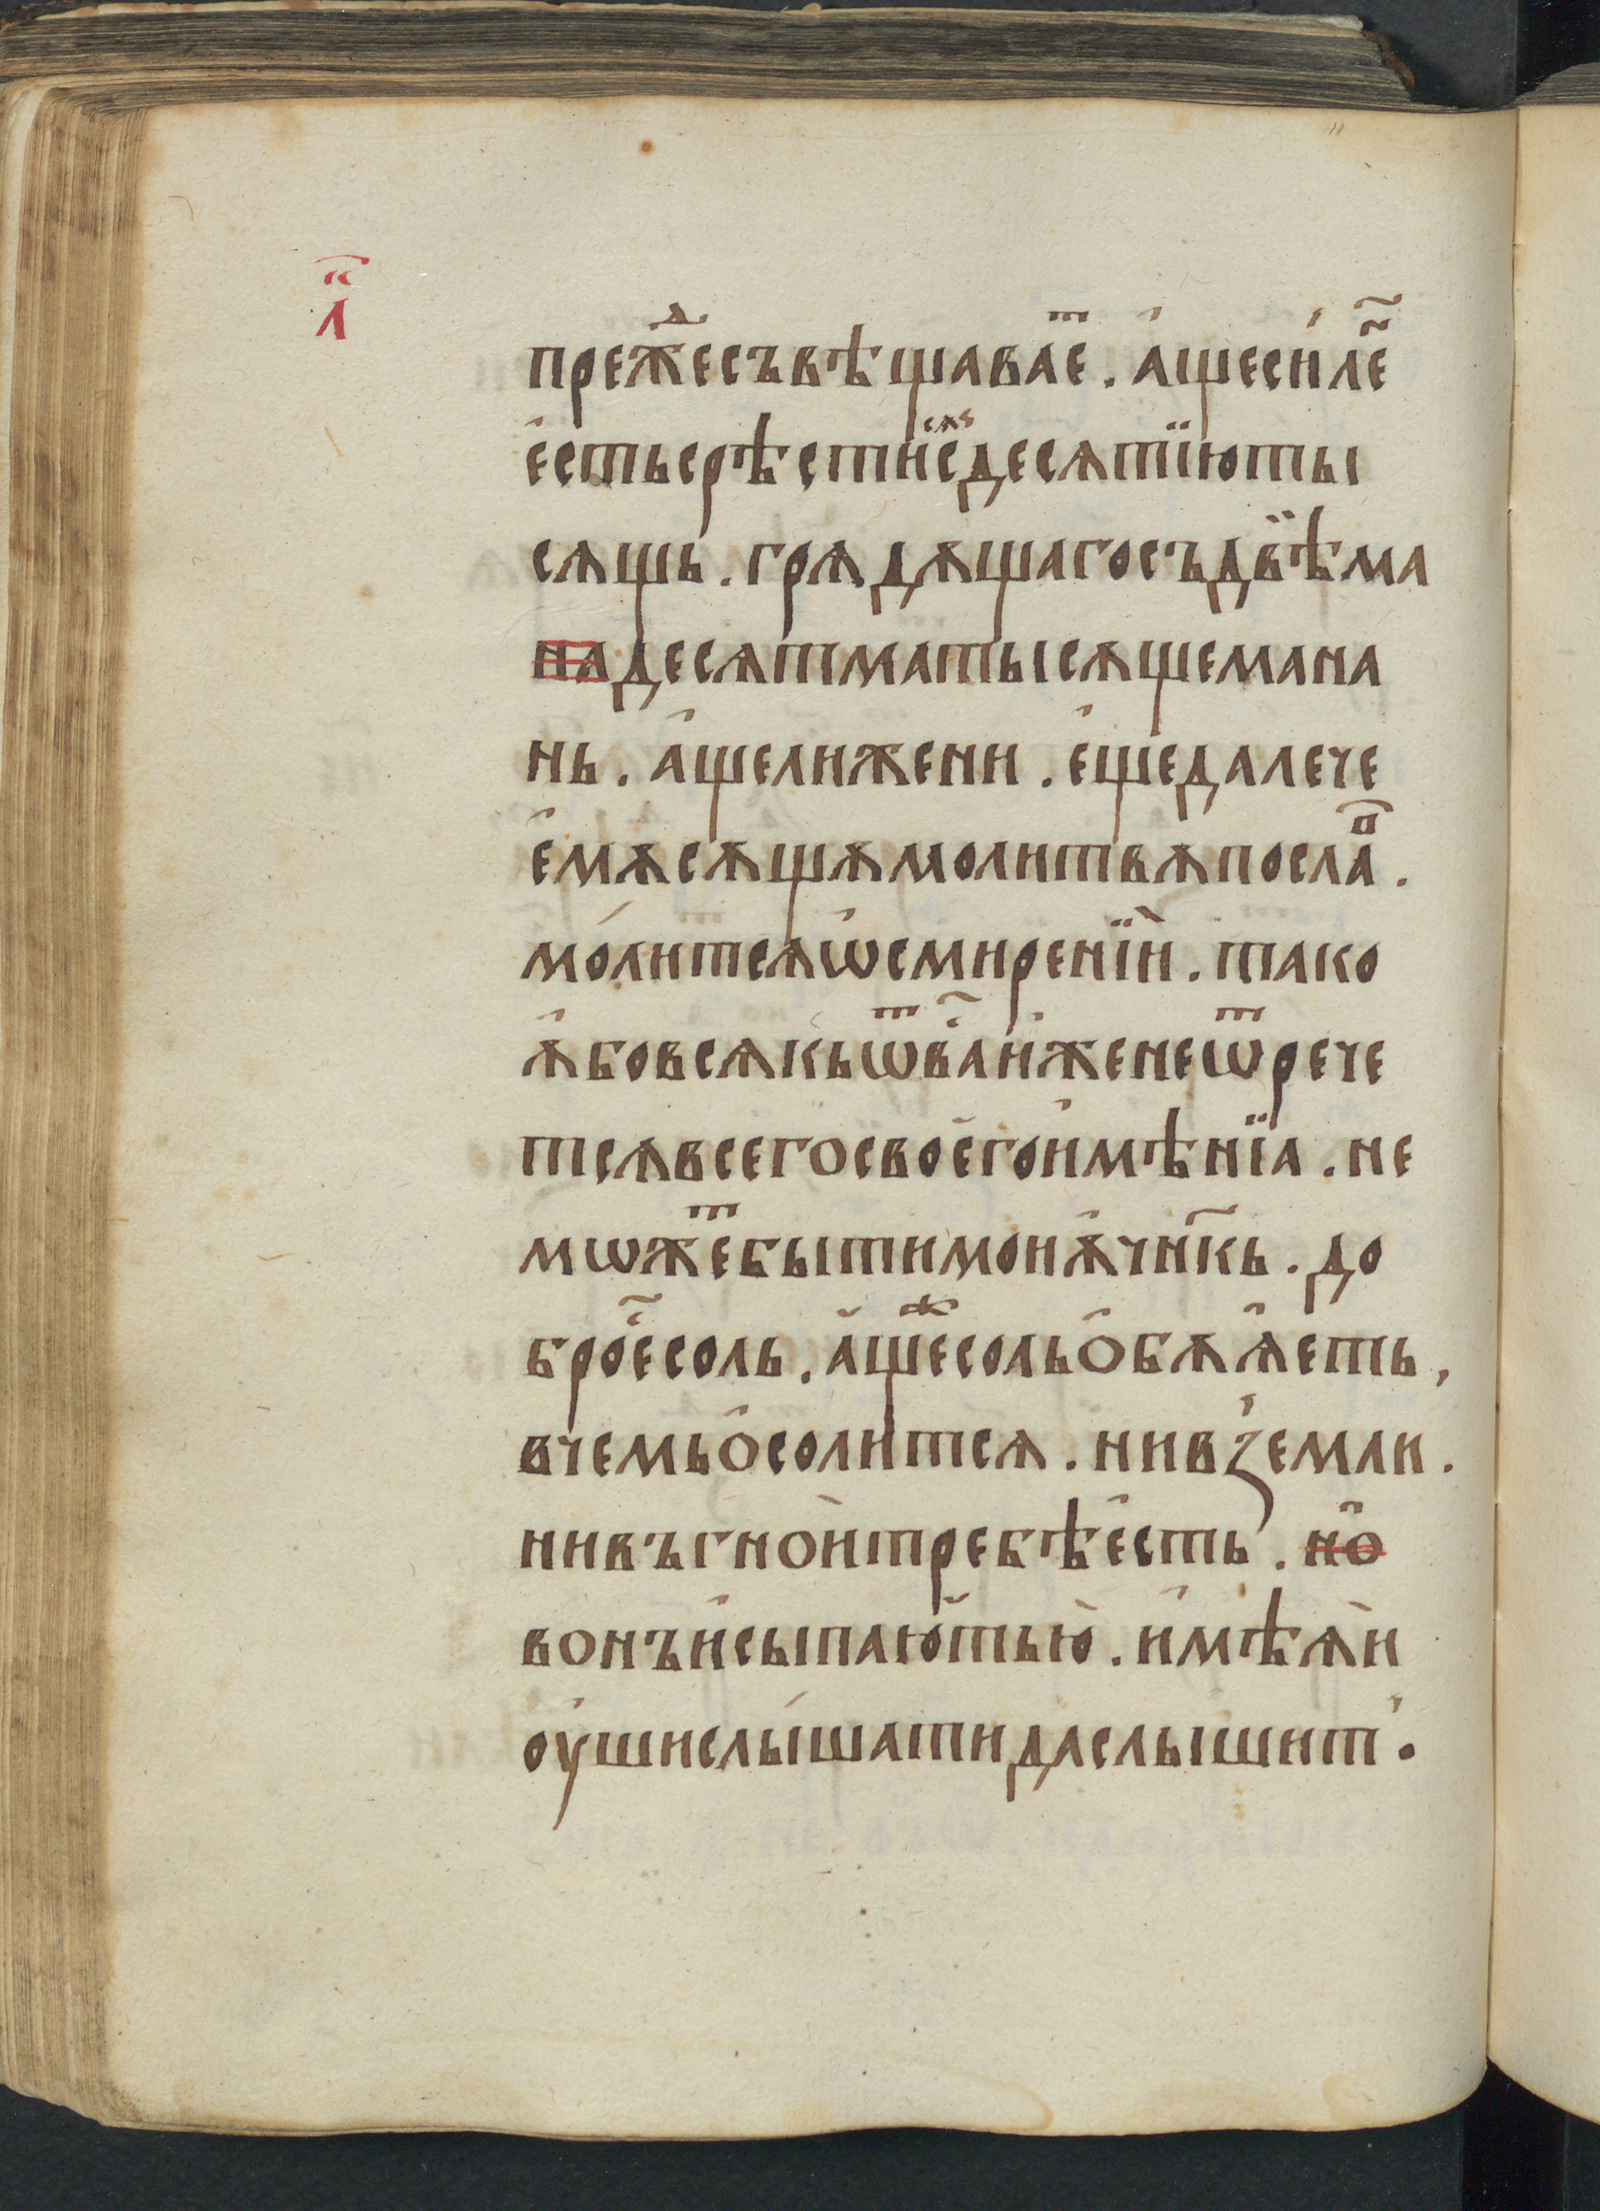 л҃
преж̑деⷭ съвѣщаваеⷮ . а҆ще си́ле҃н
е҆сть срѣсти сѧ҆ с десѧтїю ты
сѫщь . грѧдѫщаго съ двѣ̈ма
на десѧтма тысѫщема на
нь . а҆ще ли же ни . е҆ще далече
е҆мѫ сѫщѫ молитвѫ послаⷡ .
мо́литсѧ ѡ҆ смирєнїи . тако
ѫ҆бо всѧкь ѿ ва҃с иже не ѿрече
тсѧ всего своего и҆мѣнїа . не
мѡжеⷮ быти мои ѫ҆чн҃кь . до
бро҃е соль . а҆щеⷤ соль о҆бѫѧ҆еть ,
в чемь о҆солитсѧ . ни в земли .
ни въ гнои требѣ е҆сть . но҆
вонъ и҆сыпають ю . и҆мѣѧи
оу҆ши слы́шати да слышит .